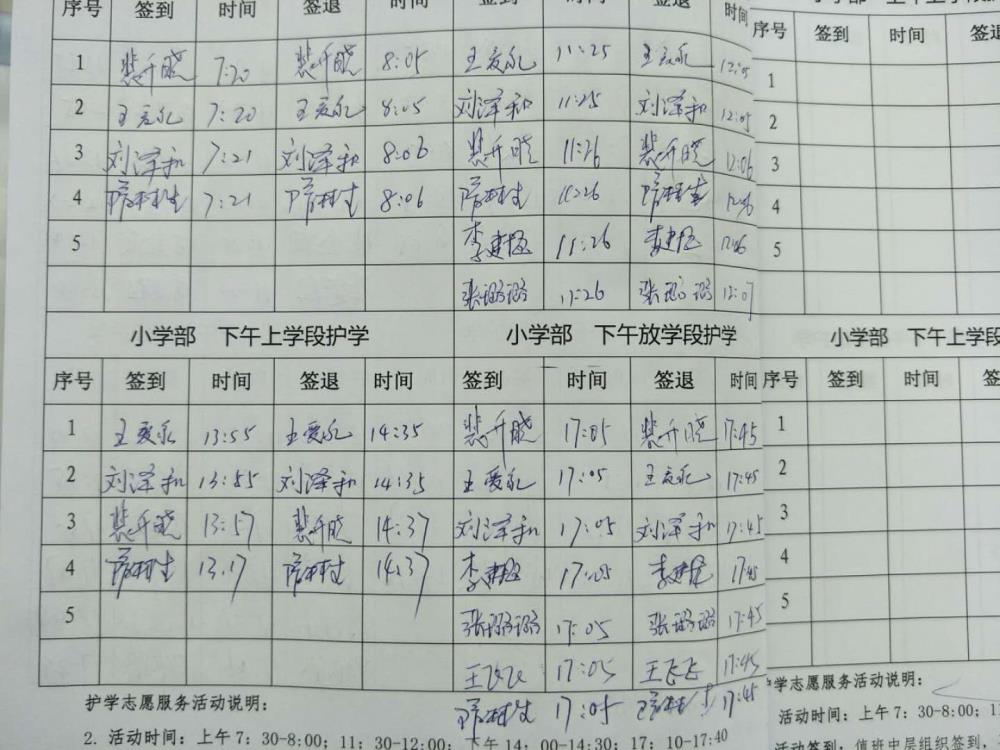 序号 签到 时间 签退 时间 签到 时间 签退 时间
1 裴升晓 7:20 裴升晓 8:05 王爱永 11:25 王爱永 12:05
2 王爱永 7:20 王爱永 8:05 刘泽和 11:25 刘泽和 12:05
3 刘泽和 7:21 刘泽和 8:06 裴升晓 11:26 裴升晓 12:06
4 7:21 8:06 11:26 12:06
5 11:26 12:06
张璐璐 11:26 张璐璐 12:07
小学部 下午上学段护学 小学部 下午放学段护学
序号 签到 时间 签退 时间 签到 时间 签退 时间
1 王爱永 13:55 王爱永 14:35 裴升晓 17:05 裴升晓 17:45
2 刘泽和 13:55 刘泽和 14:35 王爱永 17:05 王爱永 17:45
3 裴升晓 13:57 裴升晓 14:37 刘泽和 17:05 刘泽和 17:45
4 14:37 17:05 17:45
5 张璐璐 17:05 张璐璐 17:45
王飞飞 17:05 王飞飞 17:45
17:05 17:45
护学志愿服务活动说明：
2. 活动时间：上午7：30-8:00；11：30-12:00；下午14：00-14:30；17：10-17:40
小学部 上午上学段
序号 签到 时间 签
1
2
3
4
5
小学部 下午上学段
序号 签到 时间 签
1
2
3
4
5
学志愿服务活动说明：
活动时间：上午7：30-8:00；11
活动签到：值班中层组织签到、